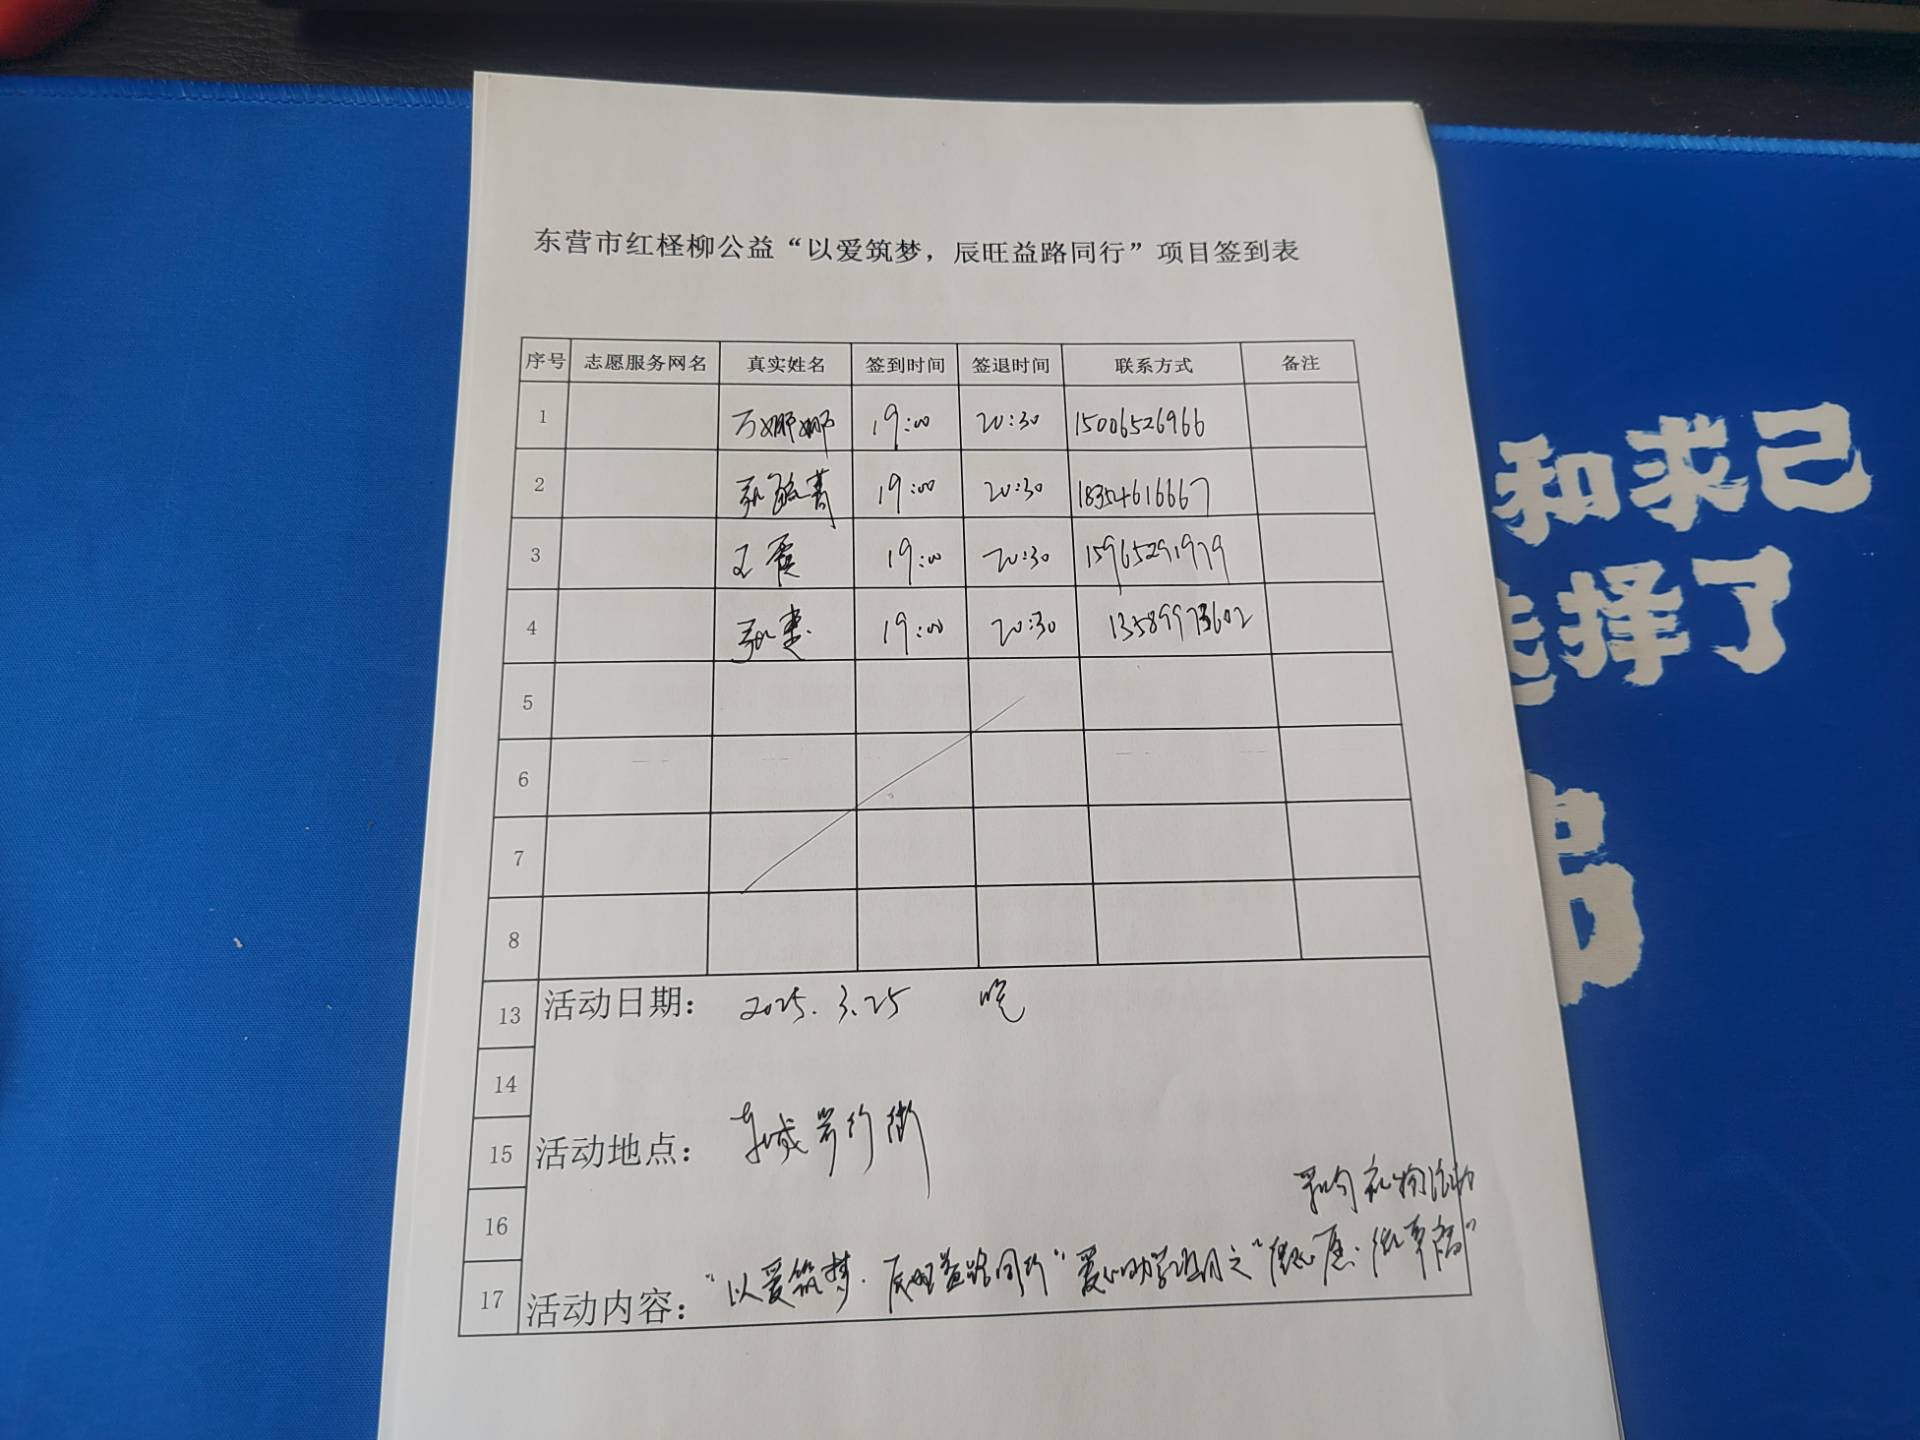 东营市红柽柳公益“以爱筑梦，辰旺益路同行”项目签到表
序号 志愿服务网名 真实姓名 签到时间 签退时间 联系方式 备注
1 万娜娜 19:00 20:30 15006526966
2 19:00 20:30 18354616667
3 王霞 19:00 20:30 15965291979
4 19:00 20:30 13589973602
5
6
7
8
13 活动日期： 2025.3.25 晚
14
15 活动地点： 东城步行街
16
17 活动内容： “以爱筑梦．辰旺益路同行”爱心助学项目之“ ”
和求己
选择了